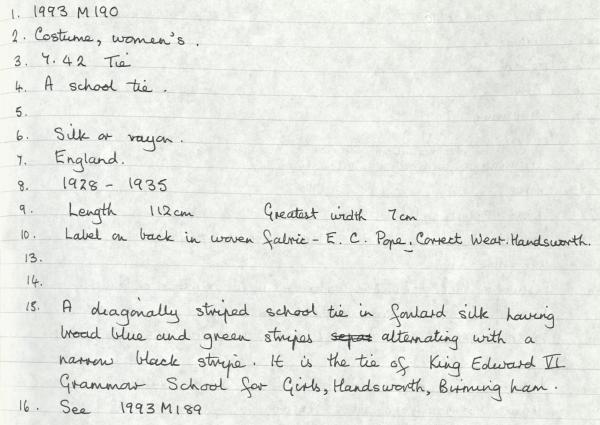 1. 1993 M 190
2. Costume, women's.
3. 7.42 Tie
4. A school tie.
5.
6. Silk or rayon.
7. England.
8. 1928 - 1935
9. Length 112cm Greatest width 7cm
10. Label on back in woven fabric - E. C. Pope, Correct Wear. Handsworth.
13.
14.
15. A diagonally striped school tie in foulard silk having
broad blue and green stripes alternating with a
narrow black stripe. It is the tie of King Edward VI
Grammar School for Girls, Handsworth, Birmingham.
16. See 1993 M 189